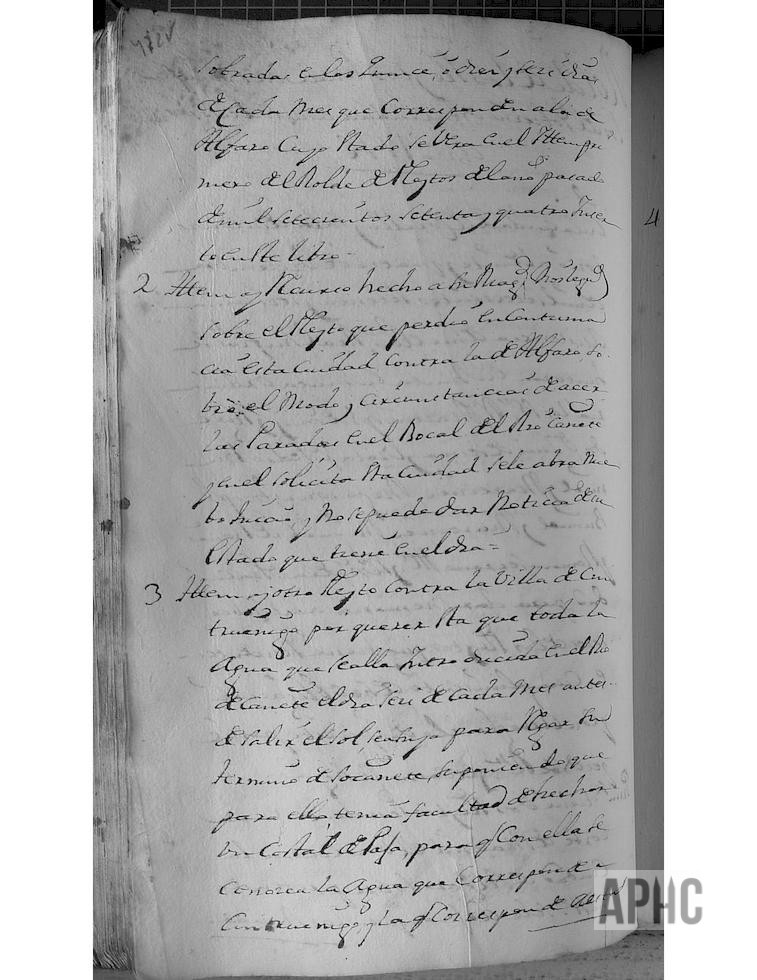 sobradas en los quince, o diez y seis dias
de Cada Mes que Corresponden a la de
Alfaro Cuyo stado se Vera en el Ittem pri
mero del Rolde de Pleytos del año pasado
de mil setecientos setenta, y quatro Inser
to en ste libro
2 Ittem ay Recurso hecho a su Mag.d
sobre el Pleyto que perdio en Contuma
cia esta Ciudad Contra la de Alfaro, so
bre el Modo, y Circunstancias de acer
las Paradas en el Bocal del Rio Cañete
y en el solicita sta Ciudad se le abra nue
bo Juicio, y No se puede dar Noticia de su
Estado que tiene en el dia =
3 Ittem ay otro Pleyto Contra la Villa de Cin
truenigo por querer sta que toda la
Agua que se alla Introducida en el Rio
de Cañete el dia seis de Cada Mes antes
de salir el sol sea suya para Regar su
termino de socañete, suponiendo que
para ello tenia facultad de hechar
un Costal de Paja, para q Con ella se
Conozca la Agua que Corresponde a
Cintruenigo, y la q Corresponde a esta
4
APHC